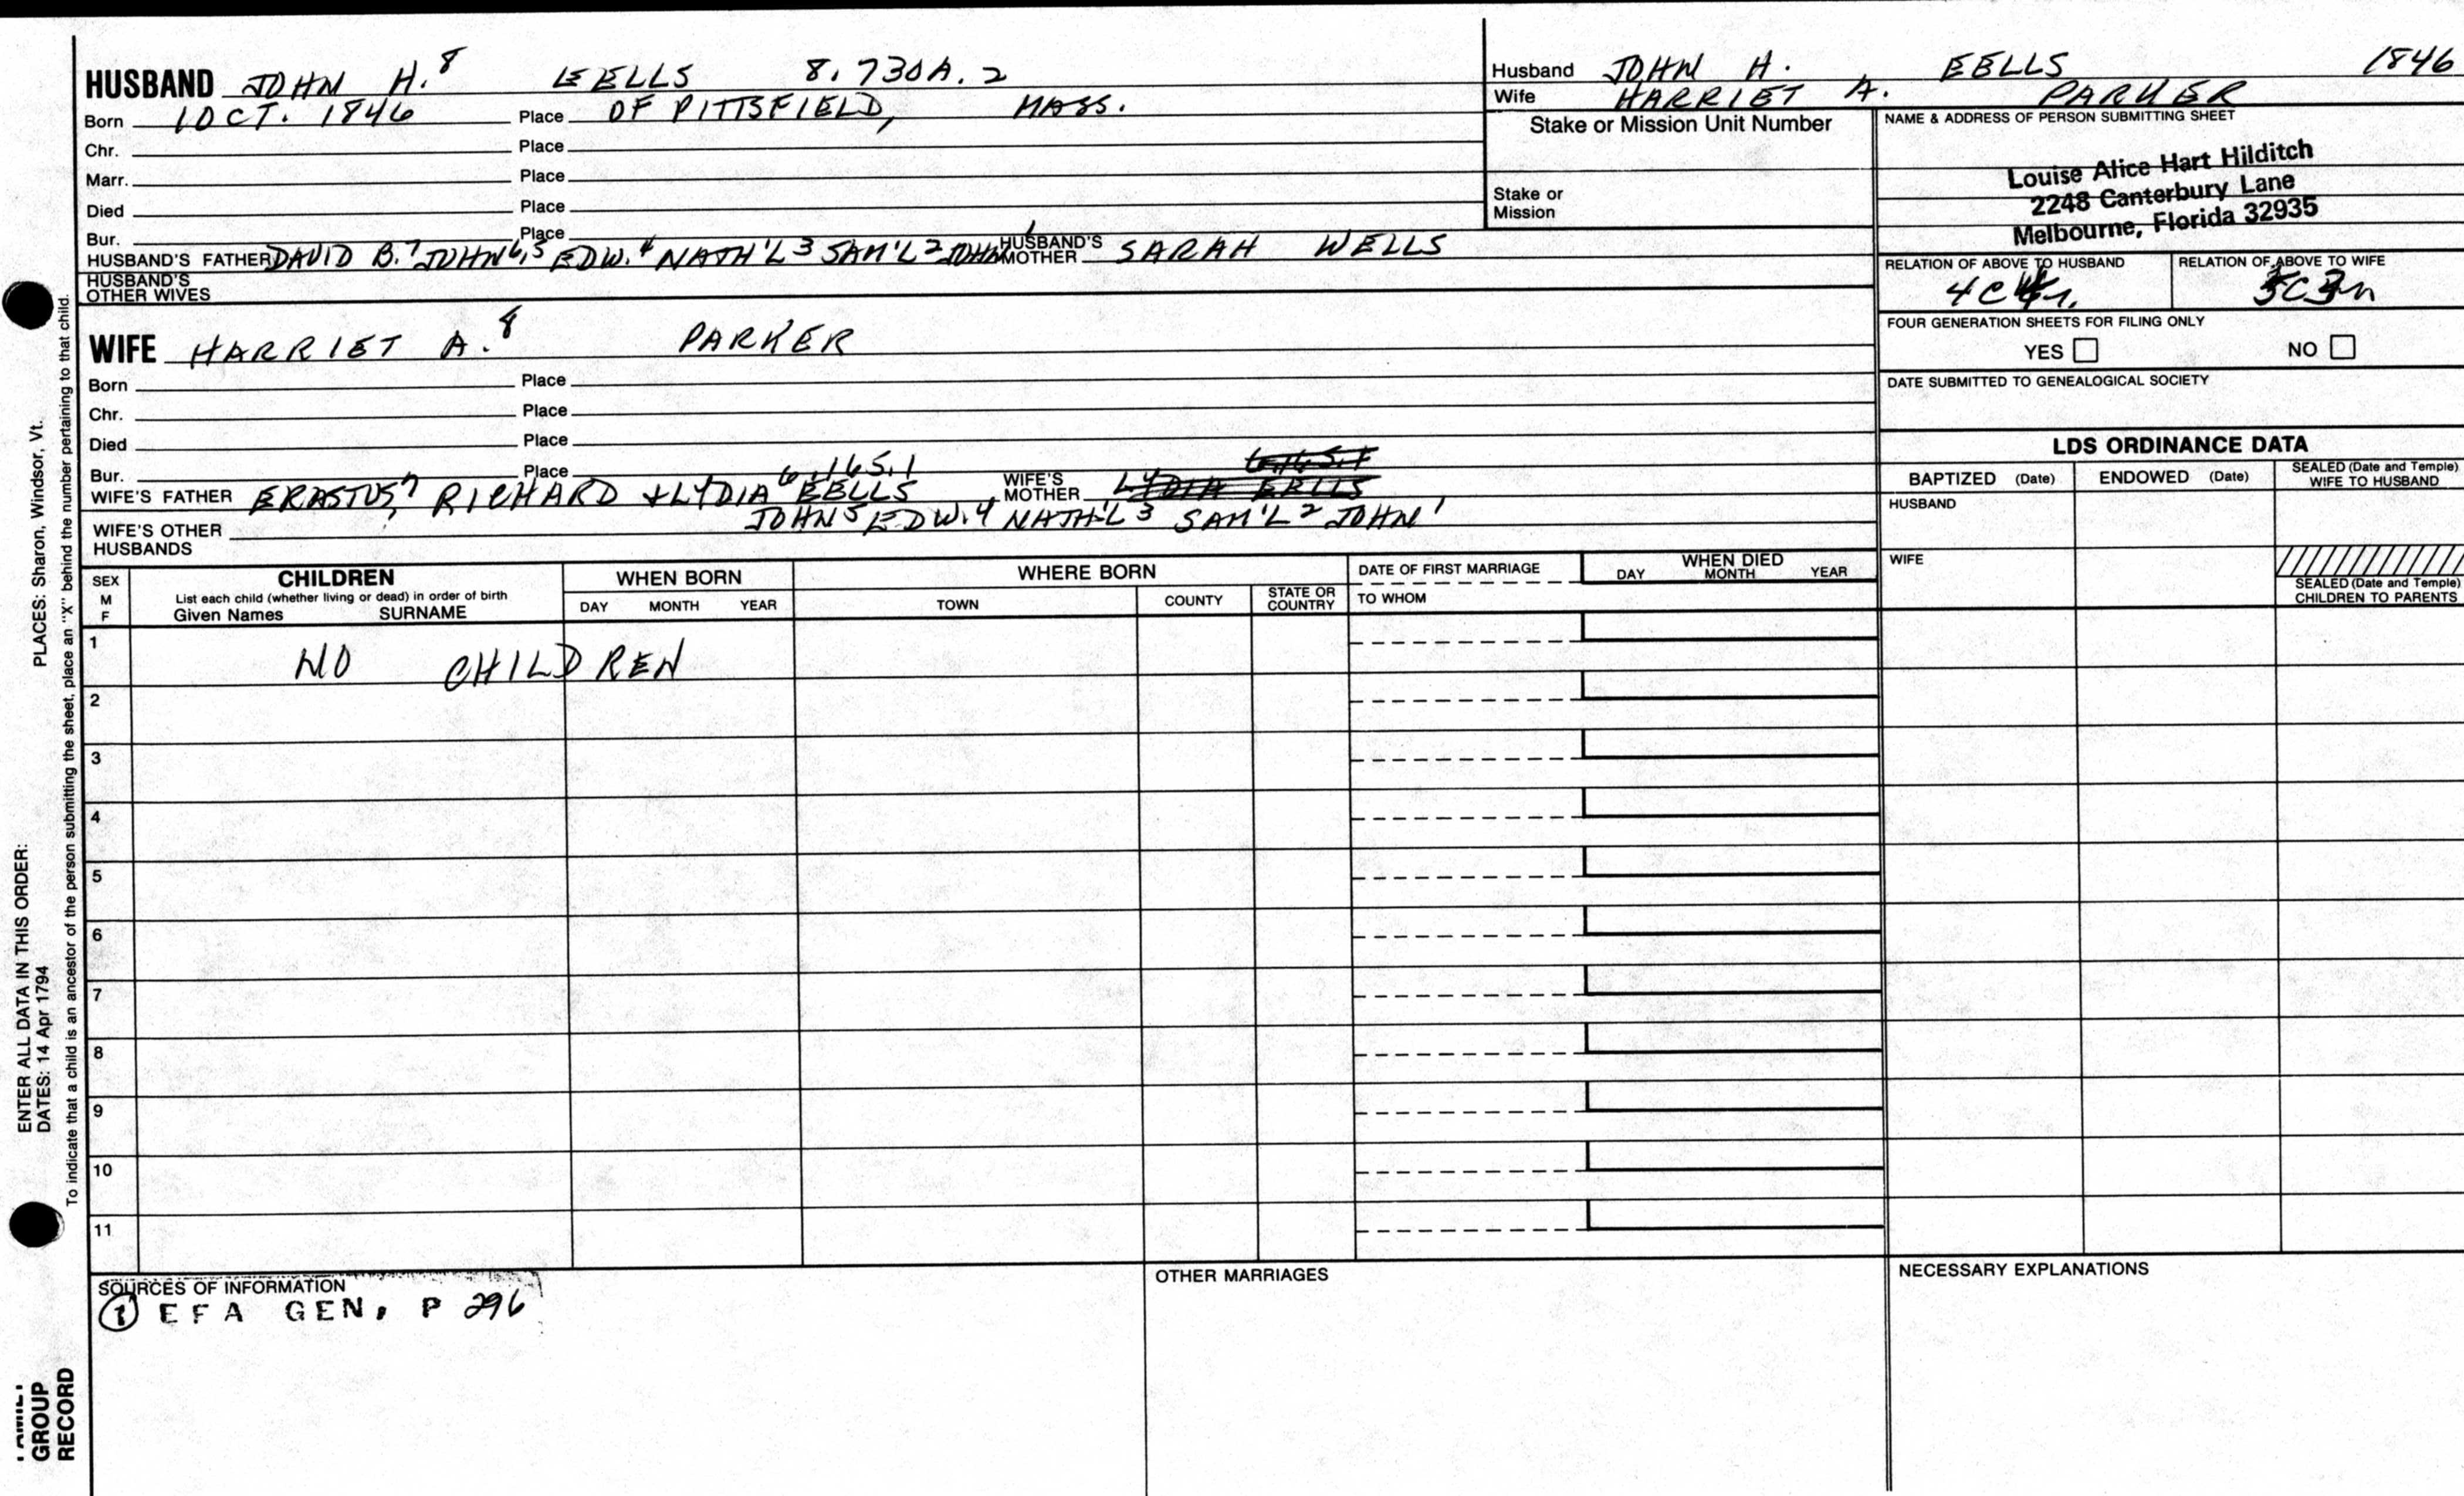 HUSBAND JOHN H.8 EELLS 8.730A.2
Born 1 OCT. 1846 Place OF PITTSFIELD, MASS.
Chr. Place
Marr. Place
Died Place
Bur. Place
HUSBAND'S FATHER DAVID B.7 JOHN6,5 EDW.4 NATH'L3 SAM'L2 JOHN1 HUSBAND'S MOTHER SARAH WELLS
HUSBAND'S OTHER WIVES
WIFE HARRIET A.8 PARKER
Born Place
Chr. Place
Died Place
Bur. Place 6.165.1
WIFE'S FATHER ERASTUS7, RICHARD & LYDIA6 EELLS WIFE'S MOTHER LYDIA EELLS
JOHN5 EDW.4 NATH'L3 SAM'L2 JOHN1
WIFE'S OTHER HUSBANDS
Husband JOHN H. EELLS 1846
Wife HARRIET A. PARKER
Stake or Mission Unit Number
Stake or Mission
NAME & ADDRESS OF PERSON SUBMITTING SHEET
Louise Alice Hart Hilditch
2248 Canterbury Lane
Melbourne, Florida 32935
RELATION OF ABOVE TO HUSBAND RELATION OF ABOVE TO WIFE
FOUR GENERATION SHEETS FOR FILING ONLY
YES NO
DATE SUBMITTED TO GENEALOGICAL SOCIETY
LDS ORDINANCE DATA
BAPTIZED (Date) ENDOWED (Date) SEALED (Date and Temple) WIFE TO HUSBAND
HUSBAND
WIFE
SEALED (Date and Temple) CHILDREN TO PARENTS
SEX M F
CHILDREN
List each child (whether living or dead) in order of birth
Given Names SURNAME
WHEN BORN
DAY MONTH YEAR
WHERE BORN
TOWN COUNTY STATE OR COUNTRY
DATE OF FIRST MARRIAGE
TO WHOM
WHEN DIED
DAY MONTH YEAR
1 NO CHILDREN
2
3
4
5
6
7
8
9
10
11
SOURCES OF INFORMATION
1 EFA GEN, P 296
OTHER MARRIAGES
NECESSARY EXPLANATIONS
ENTER ALL DATA IN THIS ORDER:
DATES: 14 Apr 1794 PLACES: Sharon, Windsor, Vt.
To indicate that a child is an ancestor of the person submitting the sheet, place an "X" behind the number pertaining to that child.
GROUP
RECORD